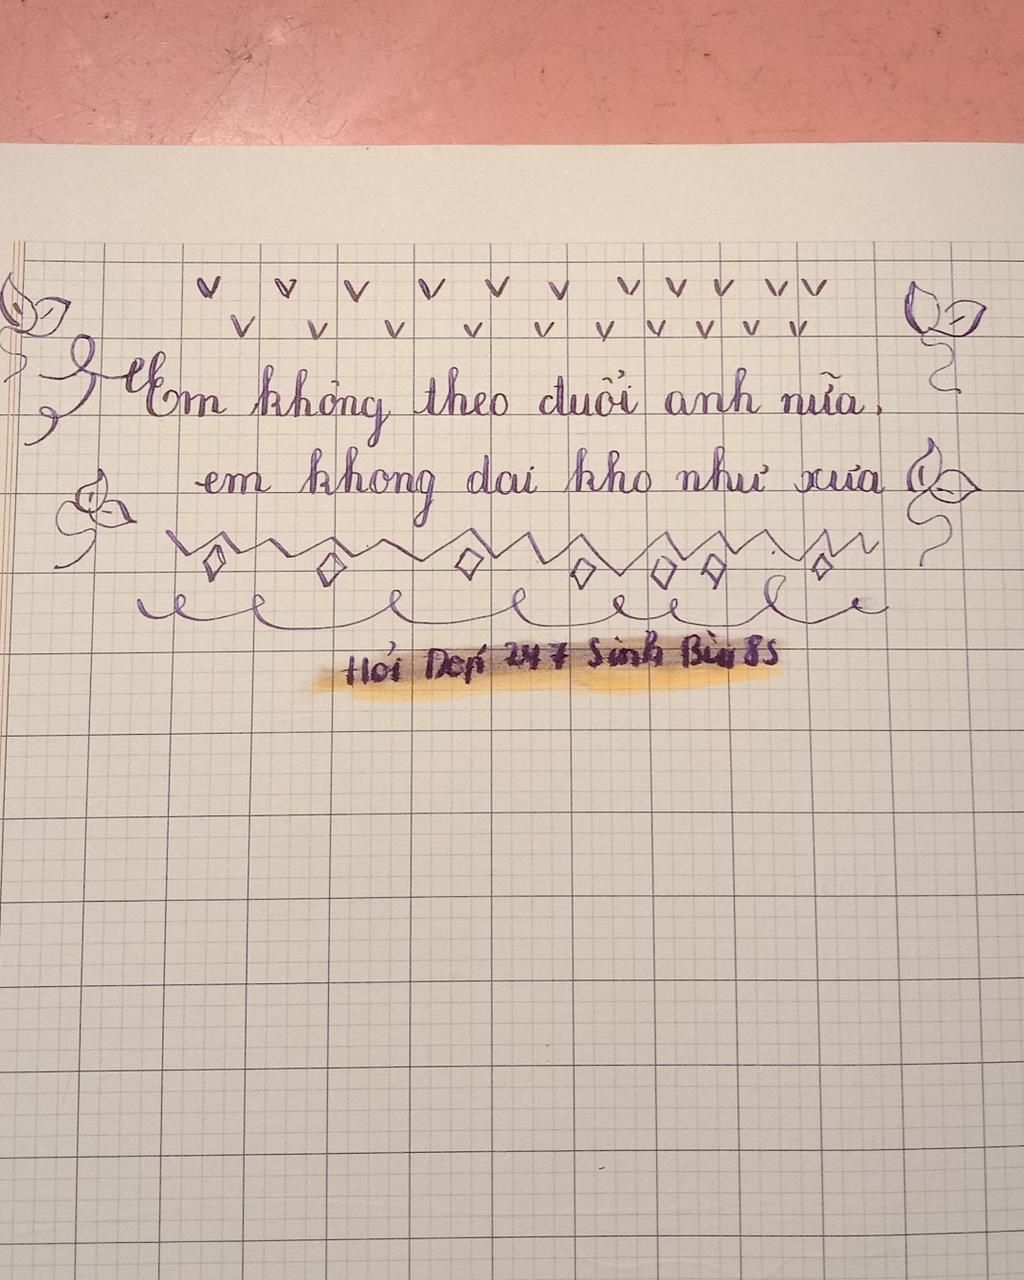 Em không theo đuổi anh nữa,
em khong dai kho như xưa
Hỏi Dep 247 Sinh Bin 8s